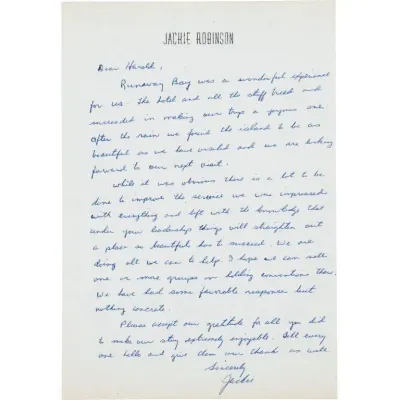 JACKIE ROBINSON
Dear Harold,
Runaway Bay was a wonderful experience
for us. The hotel and all the staff tried and
succeeded in making our trip a joyous one
after the rain we found the island to be as
beautiful as we have visited and we are looking
forward to our next visit.
While it was obvious there is a lot to be
done to improve the services we were impressed
with everything and left with the knowledge that
under your leadership things will straighten out
a place so beautiful has to succeed. We are
doing all we can to help. I hope we can sell
one or more groups on holding conventions there.
We have had some favorable response but
nothing concrete.
Please accept our gratitude for all you did
to make our stay extremely enjoyable. Tell every
one hello and give them our thanks as well
Sincerely
Jackie